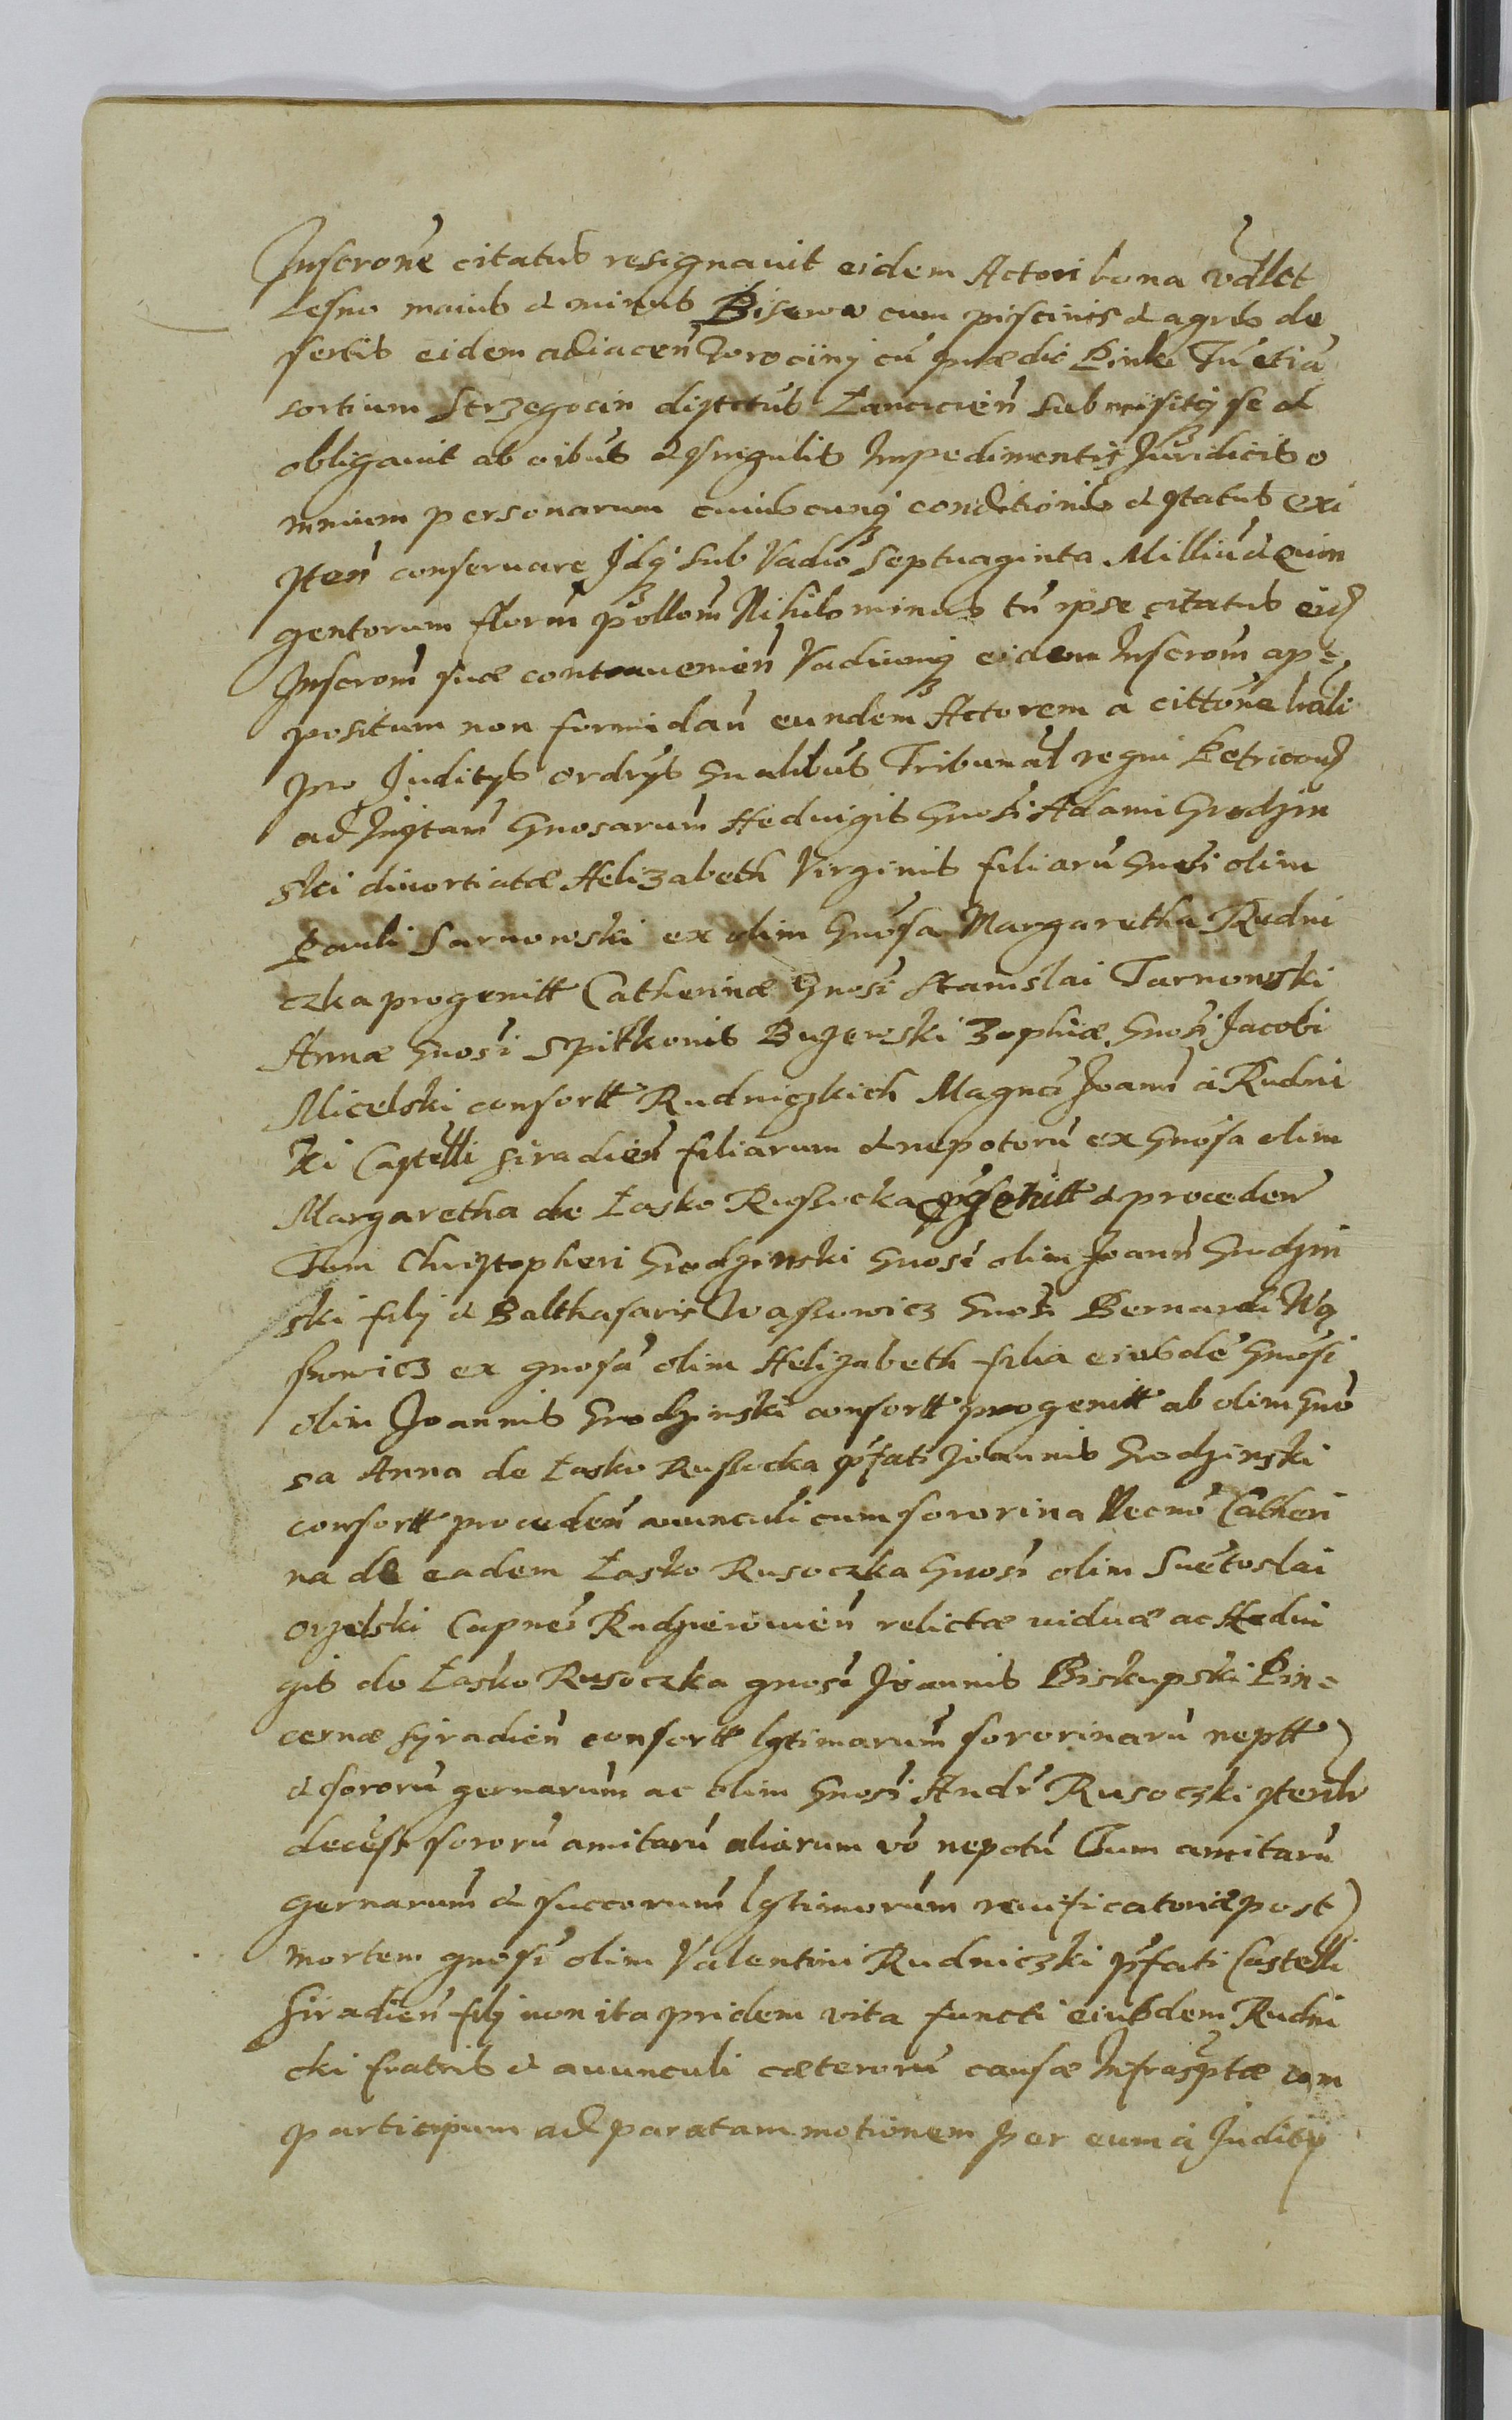 Inscrone citatus resignauit eidem Actori bona vdlct
Lesno maius & minus Biserow cum piscinis & agris de
sertis eidem adiacen Worociinj cu prædio Pinki Tu etia
sortium Strzegocin districtus Lancicien submisitq se &
obligauit ab oibus & singulis Impedimentis Juridicis o
mnium personarum cuiuscunq conditionis & status exi
sten conseruare Idq sub Vadio Septuaginta Milliu & Quin
gentorum florm pollom Nihilominus tn ipse citatus eid
Inscrom suæ contrauenien Vadiumq eidem Inscrom ap=
positum non formidan eundem Actorem a cittone hali
pro Juditys ordrys Gnalibus Tribunal regni Petricou
ad Instam Gnosarum Heduigis Gnosi Adami Grodzin
ski diuortiatæ Helizabeth Virginis filiaru Gnosi olim
Pauli Sarnowski ex olim Gnosa Margaretha Rudni
czka progenitt Catherinæ Gnosi Stanislai Tarnowski
Annæ Gnosi Spitkonis Buzenski Zophiæ Gnosi Jacobi
Micelski consortt Rudniczkich Magnci Joann a Rudni
ki Castelli siradien filiarum & nepotoru ex Gnosa olim
Margaretha de Lasko Russocka progenitt & proceden
Tum Christopheri Grodzinski Gnosi olim Joann Grodzin
ski filij & Balthasaris Wąssowicz Gnosi Bernardi Wą
ssowicz ex gnosa olim Helizabeth filia eiusde Gnosi
olim Joannis Grodzinski consortt progenitt ab olim Gno
sa Anna de Lasko Russocka pfati Joannis Grodzinski
consortt proceden auunculi cum sororina Necno Catheri
na de eadem Lasko Rusoczka Gnosi olim Suetoslai
Orzelski Capnei Radzieiouien relictæ uiduæ ac Hedui
gis de Lasko Rusoczka gnosi Joannis Biskupski Pin=
cernæ syradien consortt lgtimarum sororinaru neptt
& sororu gernarum ac olim Gnosi Andr Rusoczki steril
decess sororu amitaru aliarum vo nepotu Tum amitaru
gernarum & succorum lgtimorum reuificatoriæ post
mortem gnosi olim Valentini Rudniczki pfati Castelli
siradien filij non ita pridem vita functi eiusdem Rudni
cki fratris & auunculi cæteroru causæ Infrasptæ com
participum ad paratam motionem per eum a Judicij